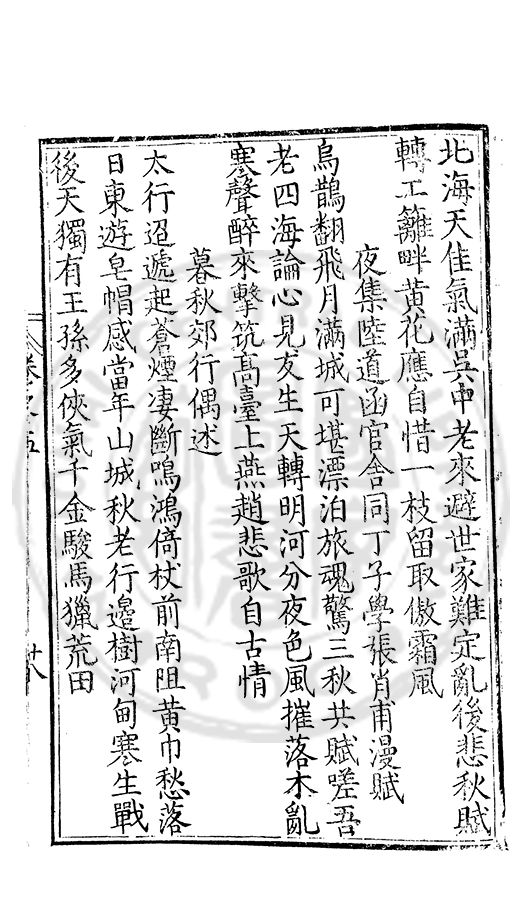 北海天佳氣滿吳中老來避世家難定亂後悲秋賦
轉工籬畔黃花應自惜一枝留取傲霜風
夜集陸道函官舍同丁子學張肖甫漫賦
烏鵲翻飛月滿城可堪漂泊旅魂驚三秋共賦嗟吾
老四海論心見友生天轉明河分夜色風摧落木亂
寒聲醉來擊筑高臺上燕趙悲歌自古情
暮秋郊行偶述
太行迢遞起蒼煙凄斷鳴鴻倚杖前南阻黃巾愁落
日東遊皂帽感當年山城秋老行邊樹河甸寒生戰
後天獨有王孫多俠氣千金駿馬獵荒田
廿八